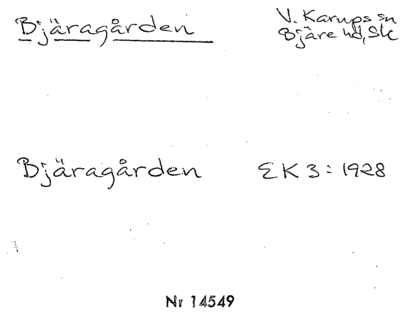 Bjäragården
V. Karups sn
Bjäre hd, Sk
Bjäragården EK 3: 1928
Nr 14549